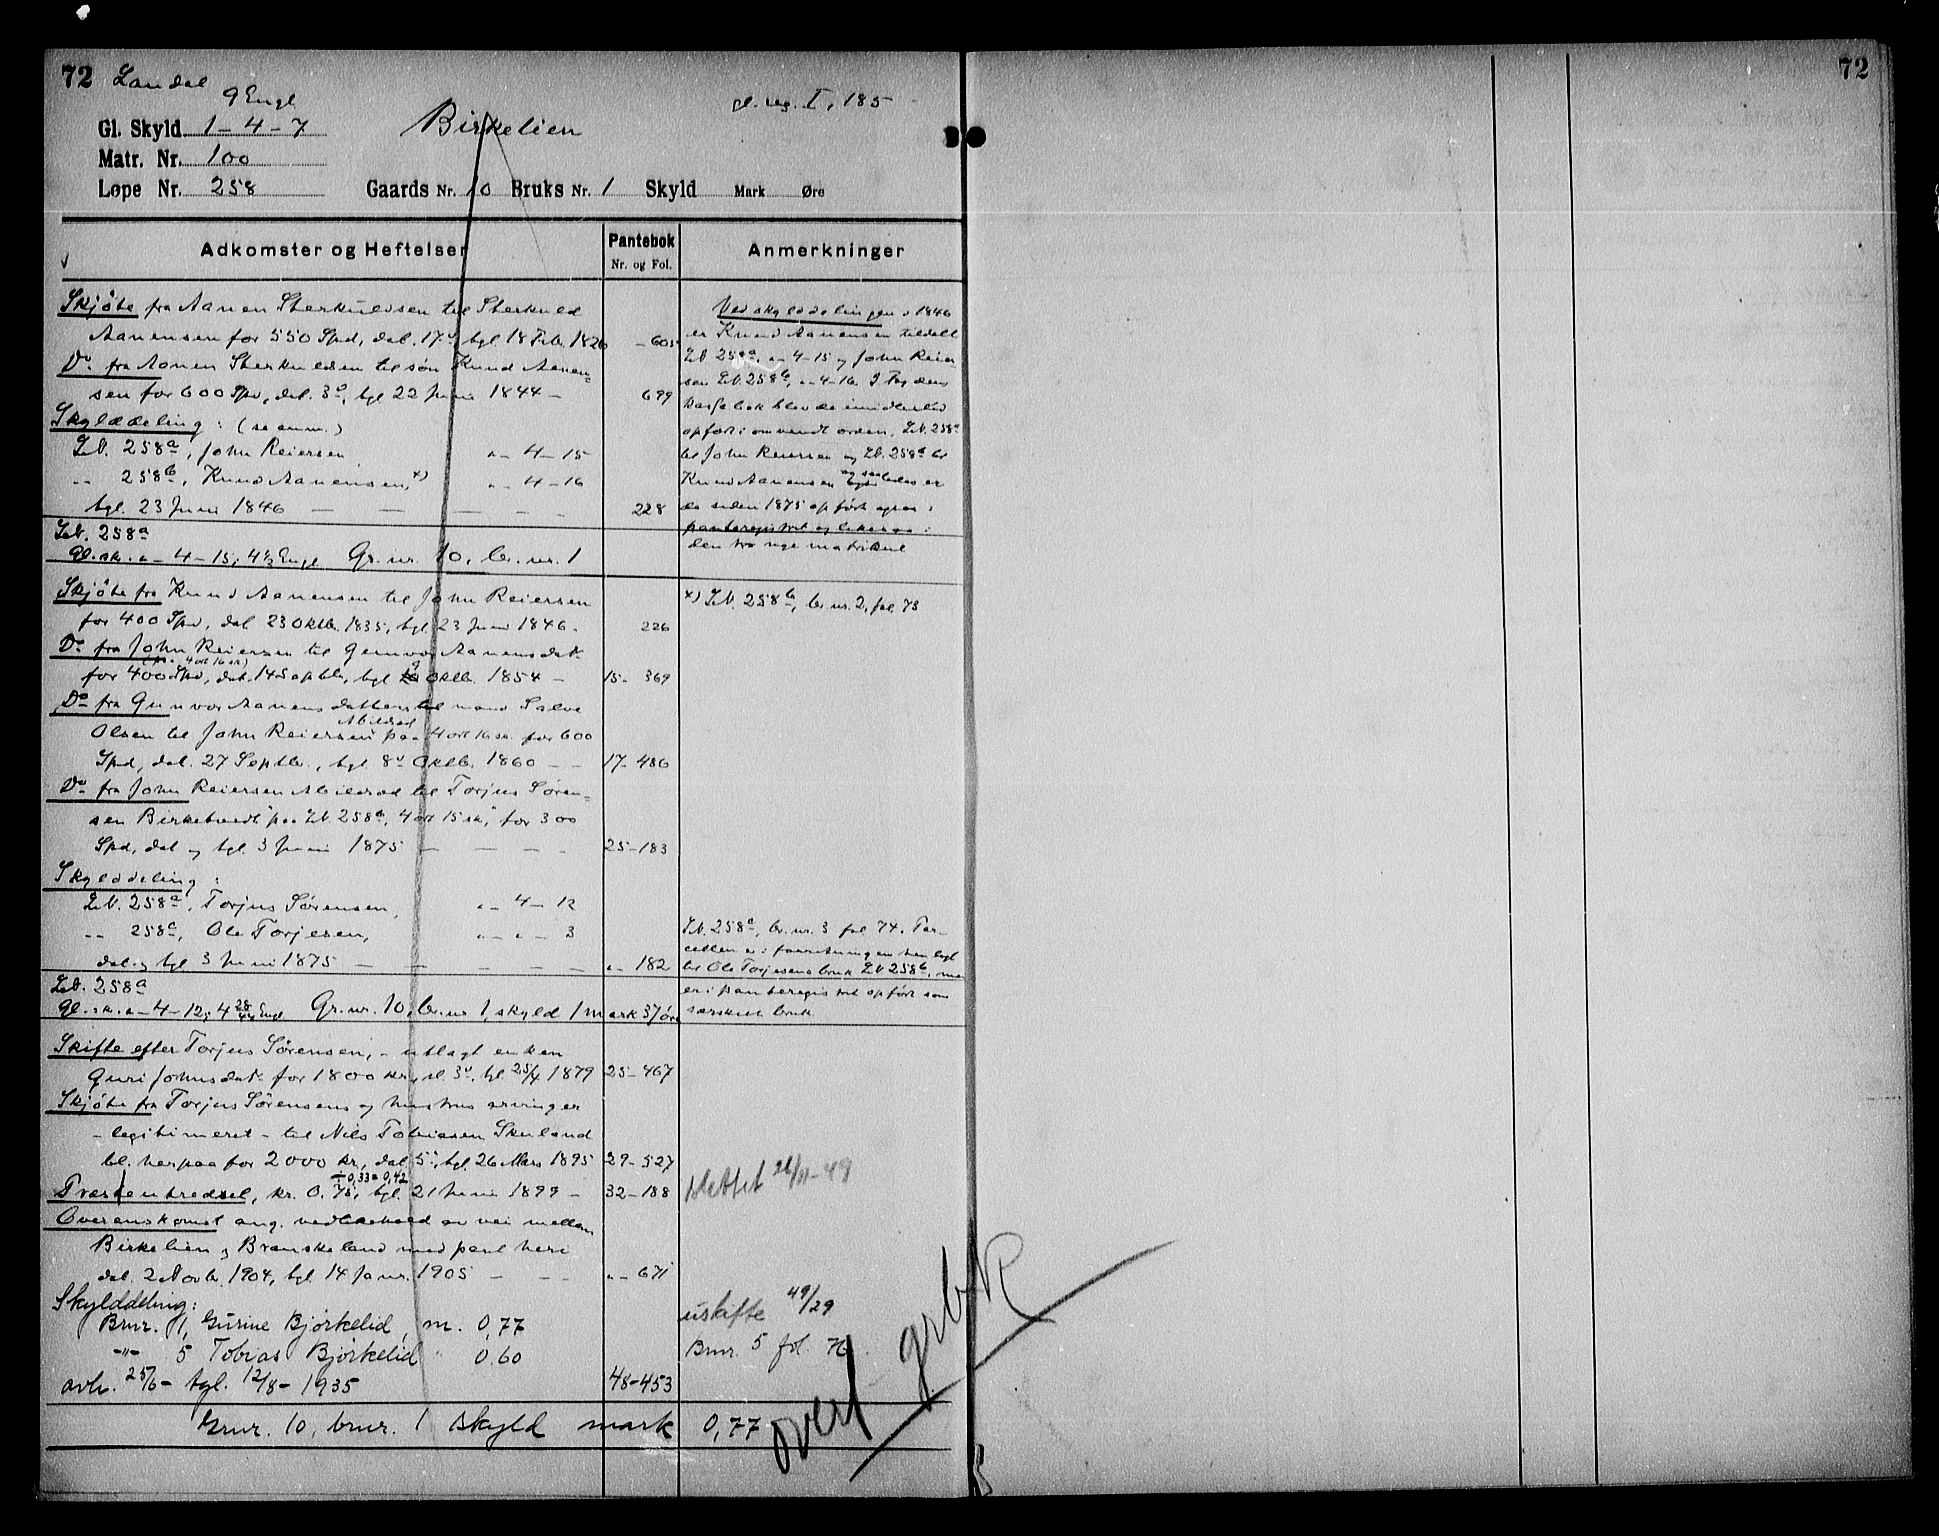 72 Landal 72
9 Engl gl. reg. I, 185
Gl. Skyld 1-4-7 Birkelien
Matr. Nr. 100
Løpe Nr. 258 Gaards Nr. 10 Bruks Nr. 1 Skyld Mark Øre
Adkomster og Heftelser Pantebok Anmerkninger
Nr. og Fol.
Skjøte fra Aanen Sterkuldsen til Sterkuld
Aanensen for 550 Spd, dat. 17de, tgl 18 Febr. 1826 - 605
Do fra Aanen Sterkuldsen til søn Knud Aanen=
sen for 600 Spd, dat. 3e, tgl 22 Juni 1844 - 699
Skylddeling: (se anm.)
LN. 258a, John Reiersen "- 4-15
-"- 258b, Knud Aanensen, x) "- 4-16
tgl. 23 Juni 1846 - - - - - 228
Ved skylddelingen i 1846
er Knud Aanensen tildelt
LN 258a, "-4-15 og John Reier-
sen LN. 258b, "-4-16. I Fogdens
opført i omvendt orden, LN. 258a
til John Reiersen og LN. 258b til
Knud Aanensen og saaledes er
de siden 1875 opført ogsaa i
panteregistret og likesaa i
den nye matrikul
LN. 258a
Gl. sk. "-4-15; 4½ Engl Gr. nr. 10, br. nr. 1
Skjøte fra Knud Aanensen til John Reiersen
for 400 Spd, dat 23 Oktb. 1835, tgl 23 Juni 1846. 226
x) LN. 258b, br. nr. 2, fol. 73
Do fra John Reiersen til Gunvor Aanensdatr
(paa 4 ort 16 sk)
for 400 Spd, dat. 14 Septbr, tgl 9 Oktb. 1854 - 15- 369
Do fra Gunvor Aanensdatters mand Salve
Abildsød
Olsen til John Reiersen paa 4 ort 16 sk. for 600
Spd, dat. 27 Septbr., tgl. 8de Oktb. 1860 - - 17- 486
Do fra John Reiersen Abildsød til Torjus Søren=
sen Birketvedt "paa LN. 258a, 4 ort 15 sk," for 300
Spd, dat og tgl. 3 Juni 1875 - - - - 25-183
Skylddeling:
LN. 258a, Torjus Sørensen, "- 4- 12
-"- 258c, Ole Torjesen, "- "- 3
dat. og tgl 3 Juni 1875 - - - - - "- 182
LN. 258c, br. nr. 3 fol 74. Par-
cellen er i forretningen henlagt
til Ole Torjesens bruk LN 258b, men
er i panteregistret opført som
særskilt bruk
LN. 258a
Gl. sk. "-4-12; 4 28/44 Engl. Gr. nr. 10, br. nr 1, skyld 1 mark 37 øre
Skifte efter Torjus Sørensen, - utlagt enken
Guri Johnsdatr for 1800 kr, sl. 3e, tgl. 25/4 1879 25-467
Skjøte fra Torjus Sørensens og hustrus arvinger
- legitimeret - til Nils Tobiassen Skuland
bl. herpaa for 2000 kr, dat. 5e, tgl. 26 Mars 1895 29-527
÷ 0,33 = 0,42
Præsteutredsel, kr. 0.75, tgl. 21 Juni 1899 - 32-188 slettet 26/11-49
Overenskomst ang. vedlikehold av vei mellem
Birkelien og Brauskeland med pant heri
dat. 2 Novbr. 1904, tgl 14 Januar 1905 - - - "- 671
Skylddeling:
Brnr. 1, Gurine Bjørkelid, m. 0,77 uskifte 49/29
-"- 5 Tobias Bjørkelid " 0,60 Bnr. 5 fol. 76.
avh. 25/6 - tgl. 12/8 - 1935 48-453
Gnr. 10, bnr. 1 skyld mark 0,77
overf grbok